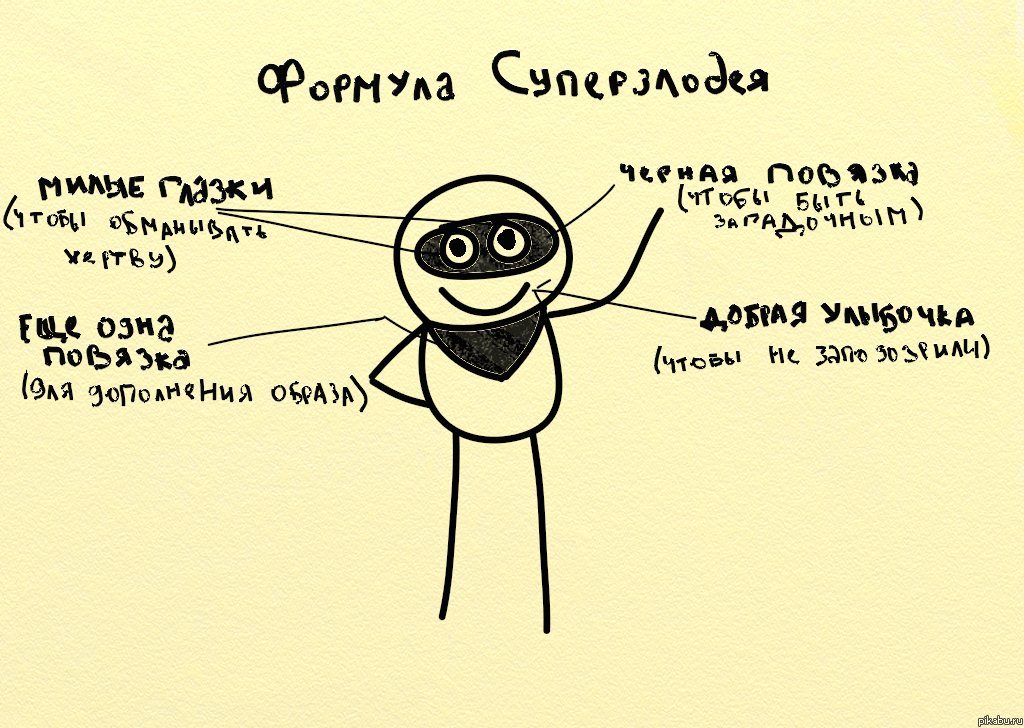 Формула Суперзлодея
милые глазки
(чтобы обманывать
жертву)
черная повязка
(чтобы быть
загадочным)
еще одна
повязка
(для дополнения образа)
добрая улыбочка
(чтобы не заподозрили)
pikabu.ru